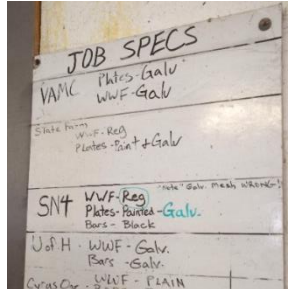 JOB SPECS
VAMC Plates-Galv
WWF-Galv
State Farm
WWF-Reg
Plates-Paint & Galv
"note" Galv. Mesh WRONG-!
SN4 WWF-Reg
Plates-Painted-Galv.
Bars-Black
U of H - WWF-Galv.
Bars-Galv.
WWF-PLAIN